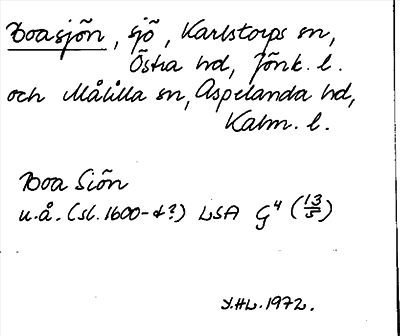 Boasjön, sjö, Karlstorps sn,
Östra hd, Jönk. l.
och Målilla sn, Aspelanda hd,
Kalm. l.
Boa Siön
u.å. (sl. 1600-t?) LSA G⁴ (13/5)
1972.